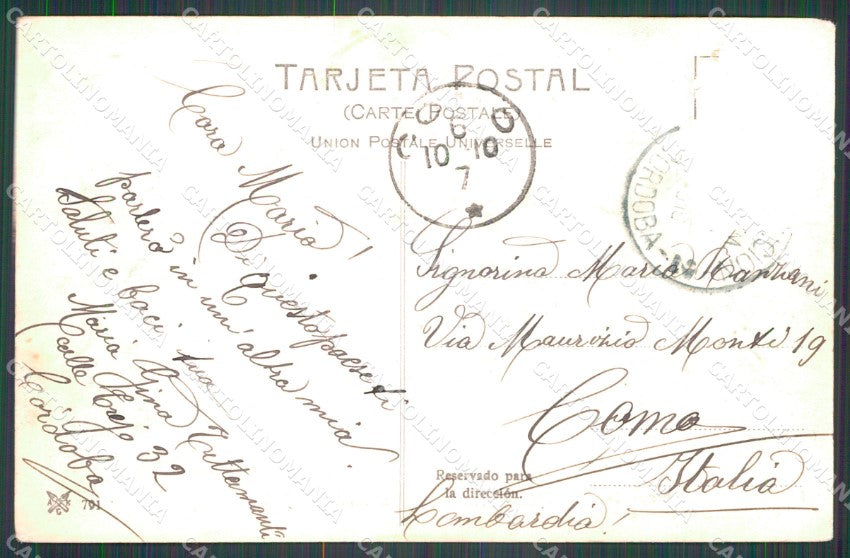 TARJETA POSTAL
(CARTE POSTALE)
UNION POSTALE UNIVERSELLE
COMO
6
10 10
7
CORDOBA
Cara Maria!
Di questo paese ti
parlerò in un'altra mia.
Saluti e baci tua
Maria Gina
Calle
32
Córdoba
Signorina Maria
Via Maurizio Monti 19
Como
Italia
Lombardia!
Reservado para
la dirección.
701
CARTOLINOMANIA